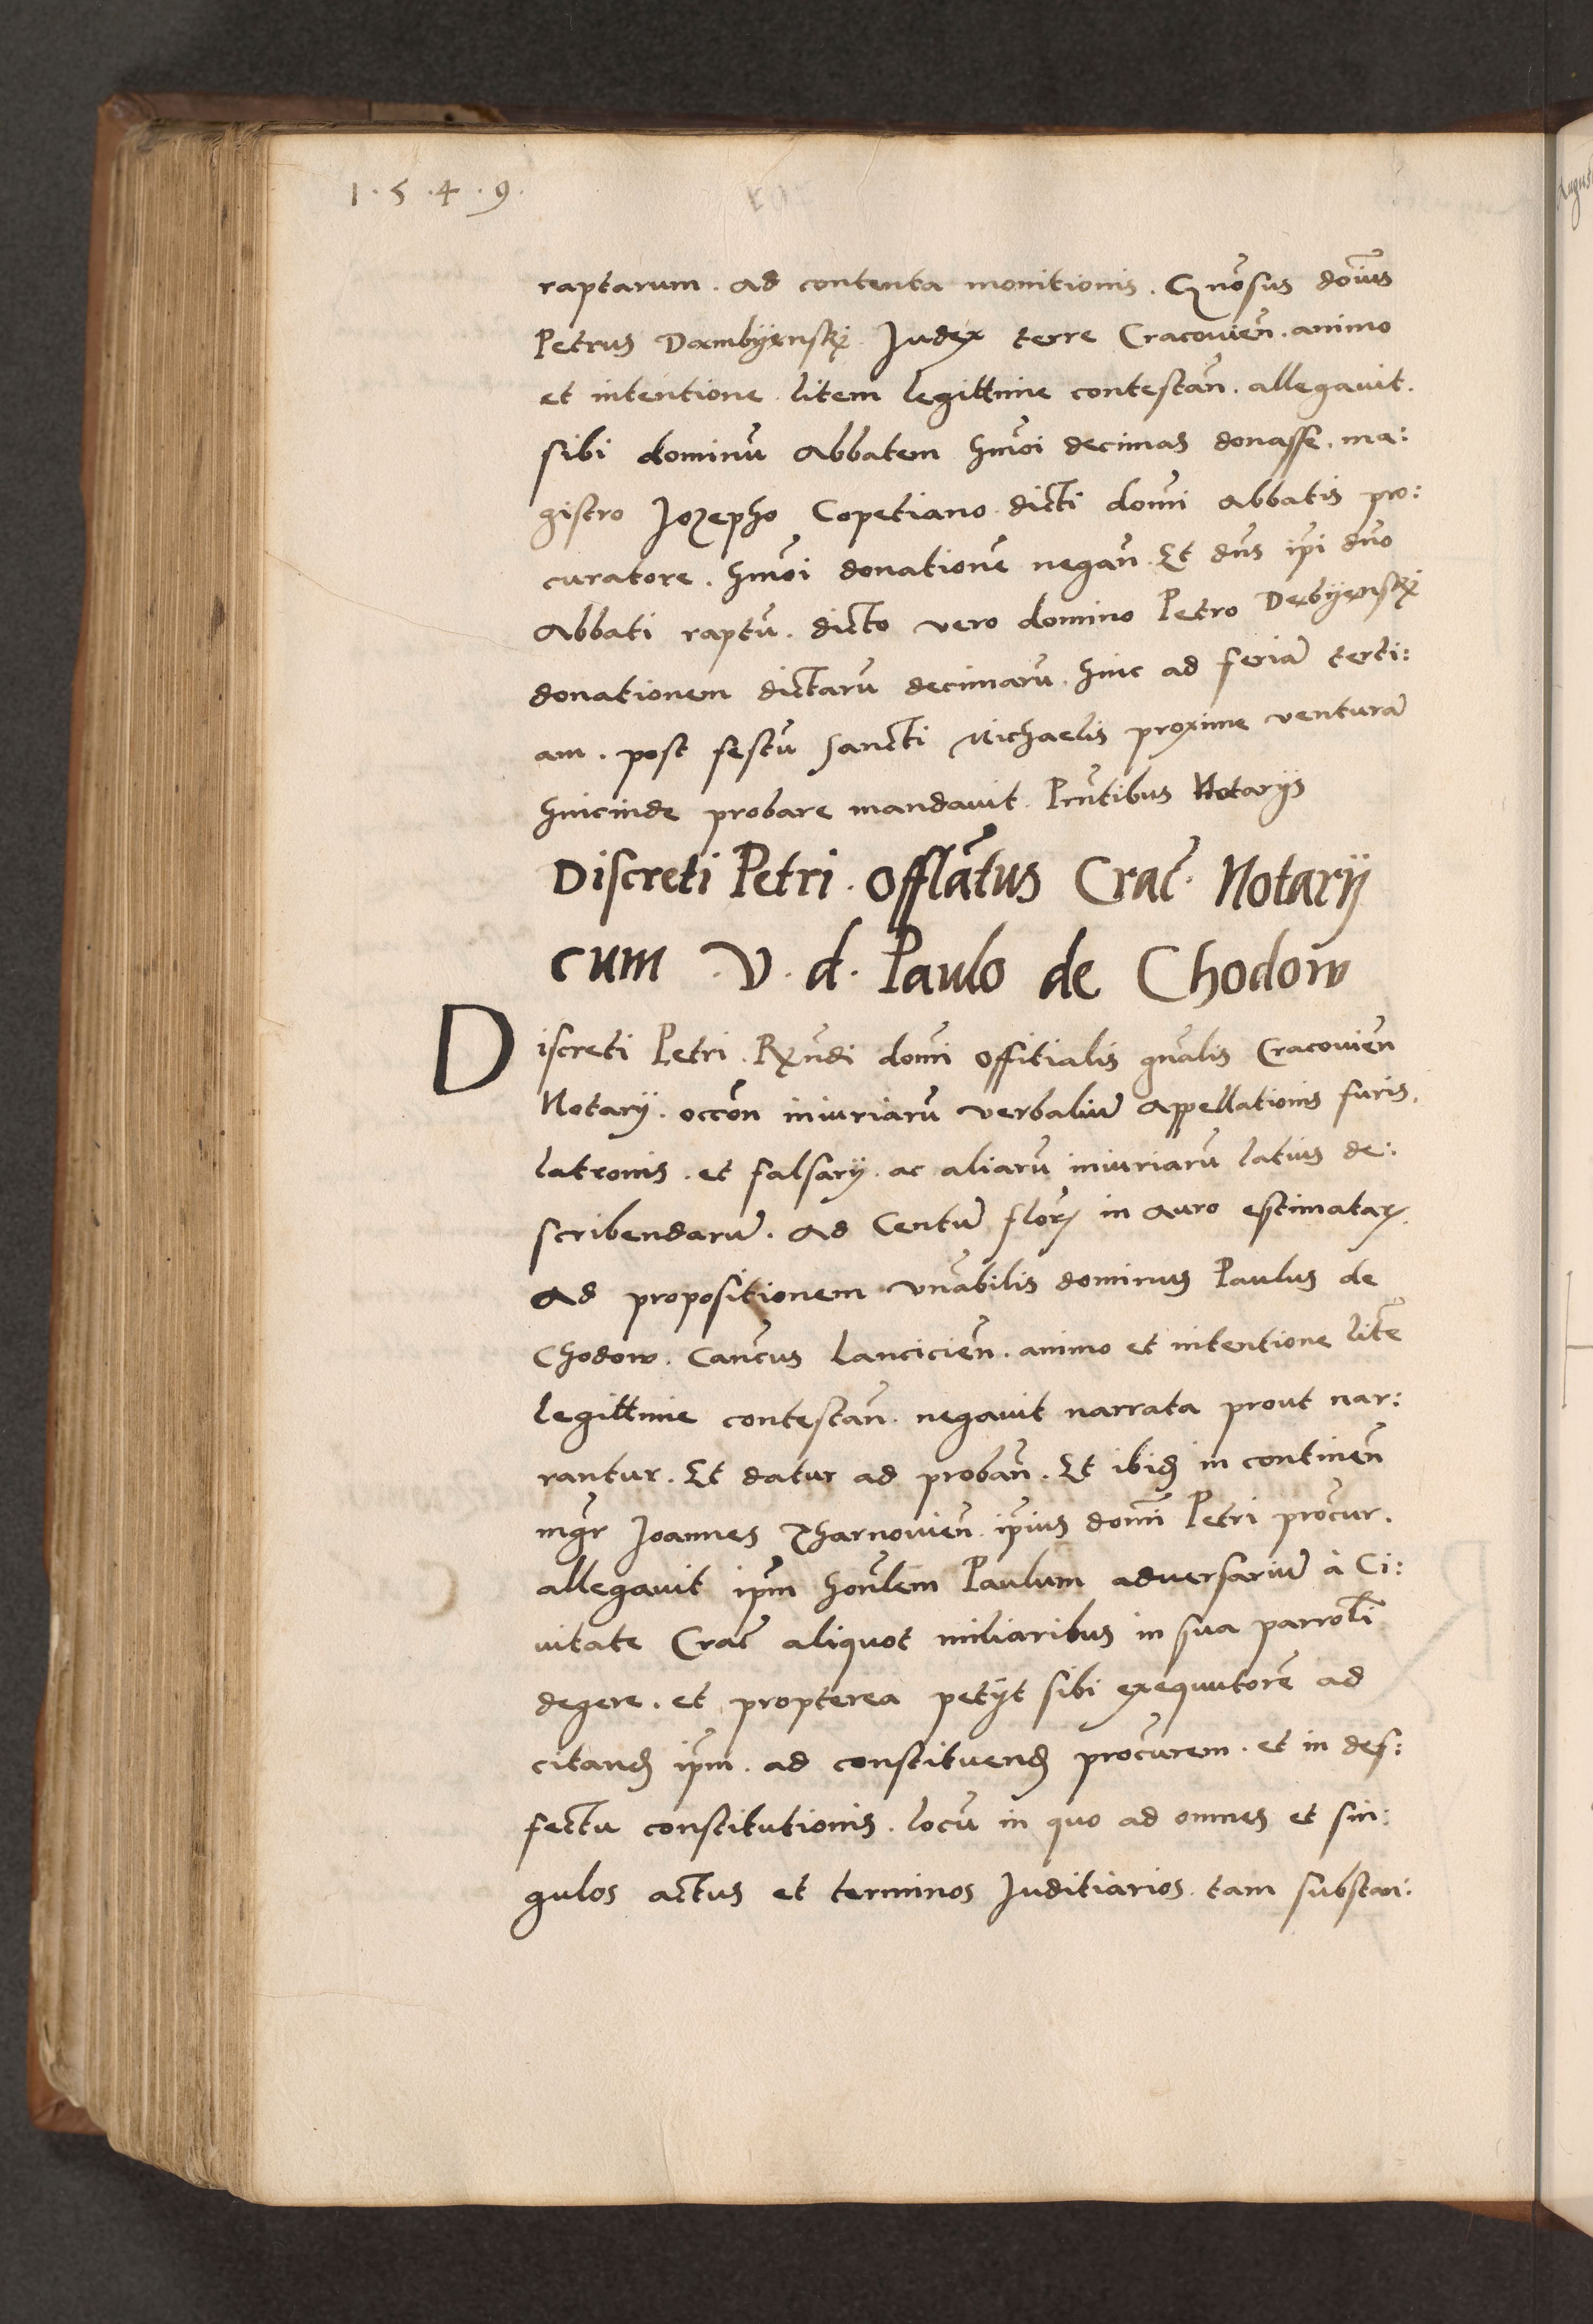 1.5.4.9.
raptarum. Ad contenta monitionis. Gnõsus dõius
Petrus Dambyenskÿ Judex terre Cracouien̄. animo
et intentione litem legittime contestan̄. allegauit.
sibi dominū Abbatem hmōi decimas donasse. ma:
gistro Jozepho Copetiano dicti dom̄i Abbatis pro:
curatore. hmōi donationē negan̄. Et dn̄s ip̄i dn̄o
Abbati raptū. dicto vero domino Petro Debyenskÿ
donationem dictarū decimarū. hinc ad feriā terti:
am. post festū Sancti Michaelis proxime venturā
hincinde probare mandauit. Pn̄tibus Notarijs
Discreti Petri. Offlātus Crac̄. Notarij
cum .V. d. Paulo de Chodow
Discreti Petri. Rx̄ndi dom̄i Offitialis gn̄alis Cracouien̄
Notarij. occōn iniuriarū verbaliū Appellationis furis.
latronis. et falsarij. ac aliarū iniuriarū latius de:
scribendarū. Ad Centū flor̄ in Auro estimatar̄.
Ad propositionem vn̄abilis dominus Paulus de
Chodow. Can̄cus Lancicien̄. animo et intentione litē
legittime contestan̄. negauit narrata prout nar:
rantur. Et datur ad proban̄. Et ibid̄ in continen̄
mgr̄ Joannes Tharnouien̄. ip̄ius dom̄i Petri procur̄.
allegauit ip̄m hon̄lem Paulum aduersariū à Ci:
uitate Crac̄ aliquot miliaribus in sua parrol̄i
degere. et propterea petijt sibi exequutorē ad
citand̄ ip̄m. ad constituend̄ procūrem. et in def:
fectu constitutionis. locū in quo ad omnes et sin:
gulos actus et terminos Juditiarios. tam substan: